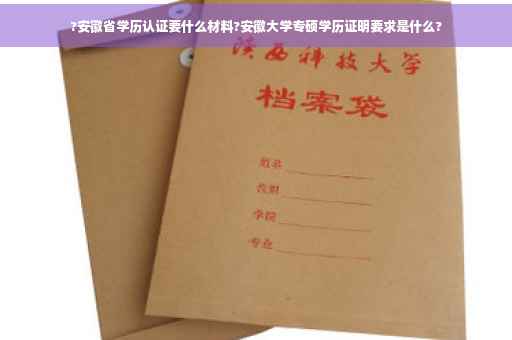 ?安徽省学历认证要什么材料?安徽大学专硕学历证明要求是什么?
陕西科技大学
档案袋
姓名
学院
专业